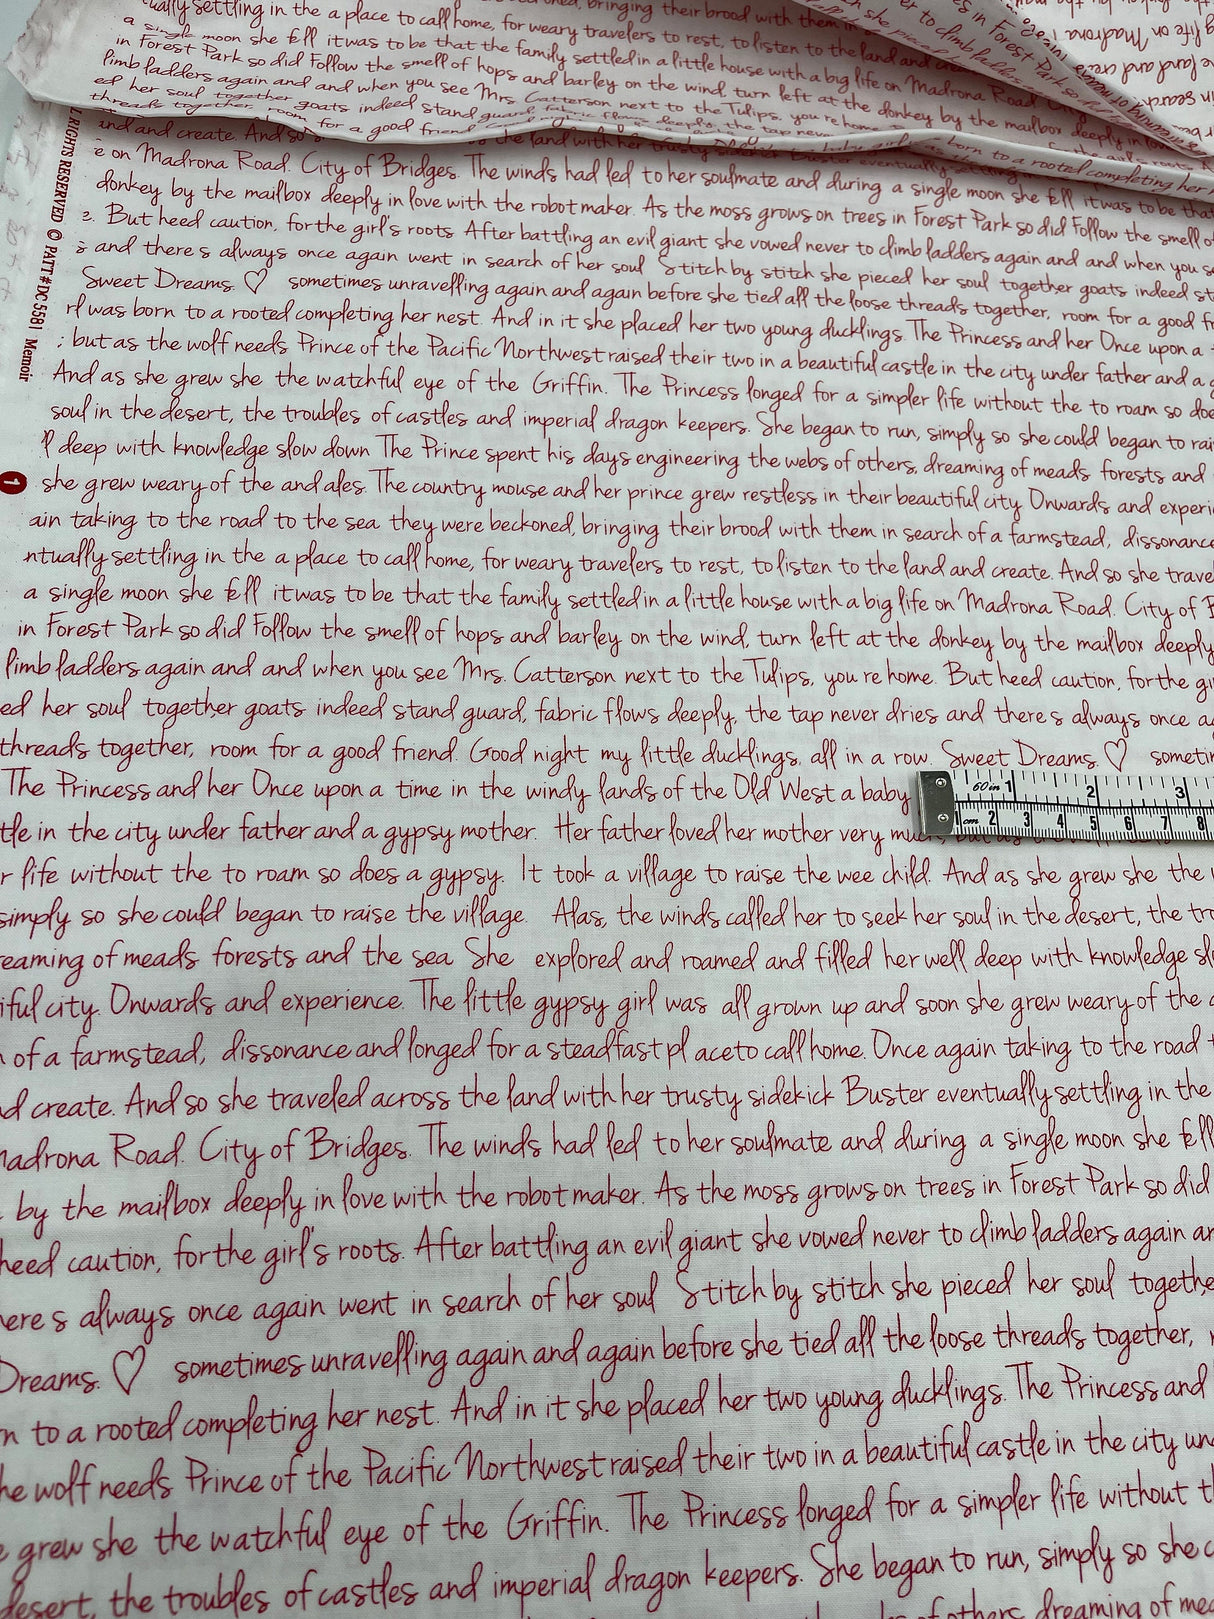 ually settling in the a place to call home, for weary travelers to rest, to listen to the land and
a single moon she fell it was to be that the family settled in a little house with a big life on Madrona Road
in Forest Park so did Follow the smell of hops and barley on the wind turn left at the donkey by the mailbox deeply in
limb ladders again and and when you see Mrs. Catterson next to the Tulips, you re home
ed her soul together goats indeed stand guard
threads together, room for a good friend
ALL RIGHTS RESERVED © PATT# DC5581 Memoir
1
and and create. And so the land with her trusty sidekick Buster eventually settling
e on Madrona Road. City of Bridges. The winds had led to her soulmate and during a single moon she fell it was to be that
donkey by the mailbox deeply in love with the robot maker. As the moss grows on trees in Forest Park so did Follow the smell o
e. But heed caution, for the girl's roots After battling an evil giant she vowed never to climb ladders again and and when you s
s and there s always once again went in search of her soul Stitch by stitch she pieced her soul together goats indeed st
Sweet Dreams. ♡ sometimes unravelling again and again before she tied all the loose threads together, room for a good fr
rl was born to a rooted completing her nest. And in it she placed her two young ducklings. The Princess and her Once upon a
; but as the wolf needs Prince of the Pacific Northwest raised their two in a beautiful castle in the city under father and a g
And as she grew she the watchful eye of the Griffin. The Princess longed for a simpler life without the to roam so doe
soul in the desert, the troubles of castles and imperial dragon keepers. She began to run, simply so she could began to rai
ll deep with knowledge slow down The Prince spent his days engineering the webs of others, dreaming of meads forests and
she grew weary of the and ales. The country mouse and her prince grew restless in their beautiful city Onwards and experi
ain taking to the road to the sea they were beckoned, bringing their brood with them in search of a farmstead, dissonance
ntually settling in the a place to call home, for weary travelers to rest, to listen to the land and create. And so she trave
a single moon she fell it was to be that the family settled in a little house with a big life on Madrona Road. City of B
in Forest Park so did Follow the smell of hops and barley on the wind, turn left at the donkey by the mailbox deeply
limb ladders again and and when you see Mrs. Catterson next to the Tulips, you re home. But heed caution, for the gi
ed her soul together goats indeed stand guard, fabric flows deeply, the tap never dries and there s always once ag
threads together, room for a good friend. Good night my little ducklings, all in a row. Sweet Dreams. ♡ sometin
The Princess and her Once upon a time in the windy lands of the Old West a baby
60 in 1 2 3
1 cm 2 3 4 5 6 7 8
tle in the city under father and a gypsy mother. Her father loved her mother very much, but as
r life without the to roam so does a gypsy. It took a village to raise the wee child. And as she grew she the
simply so she could began to raise the village. Alas, the winds called her to seek her soul in the desert, the tro
reaming of meads forests and the sea She explored and roamed and filled her well deep with knowledge sl
iful city. Onwards and experience. The little gypsy girl was all grown up and soon she grew weary of the
of a farmstead, dissonance and longed for a steadfast pl aceto call home. Once again taking to the road t
d create. And so she traveled across the land with her trusty sidekick Buster eventually settling in the
Madrona Road. City of Bridges. The winds had led to her soulmate and during a single moon she fell
by the mailbox deeply in love with the robot maker. As the moss grows on trees in Forest Park so did
heed caution, for the girl's roots. After battling an evil giant she vowed never to climb ladders again an
here s always once again went in search of her soul Stitch by stitch she pieced her soul togethe
Dreams. ♡ sometimes unravelling again and again before she tied all the loose threads together,
n to a rooted completing her nest. And in it she placed her two young ducklings. The Princess and
he wolf needs Prince of the Pacific Northwest raised their two in a beautiful castle in the city un
e grew she the watchful eye of the Griffin. The Princess longed for a simpler life without t
desert, the troubles of castles and imperial dragon keepers. She began to run, simply so she c
of others, dreaming of mea